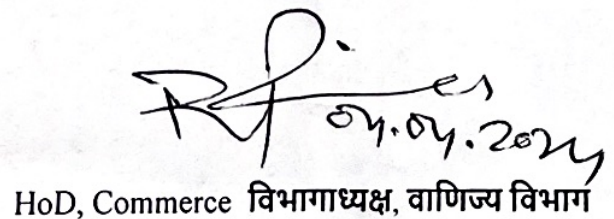 04.04.2024
HoD, Commerce विभागाध्यक्ष, वाणिज्य विभाग